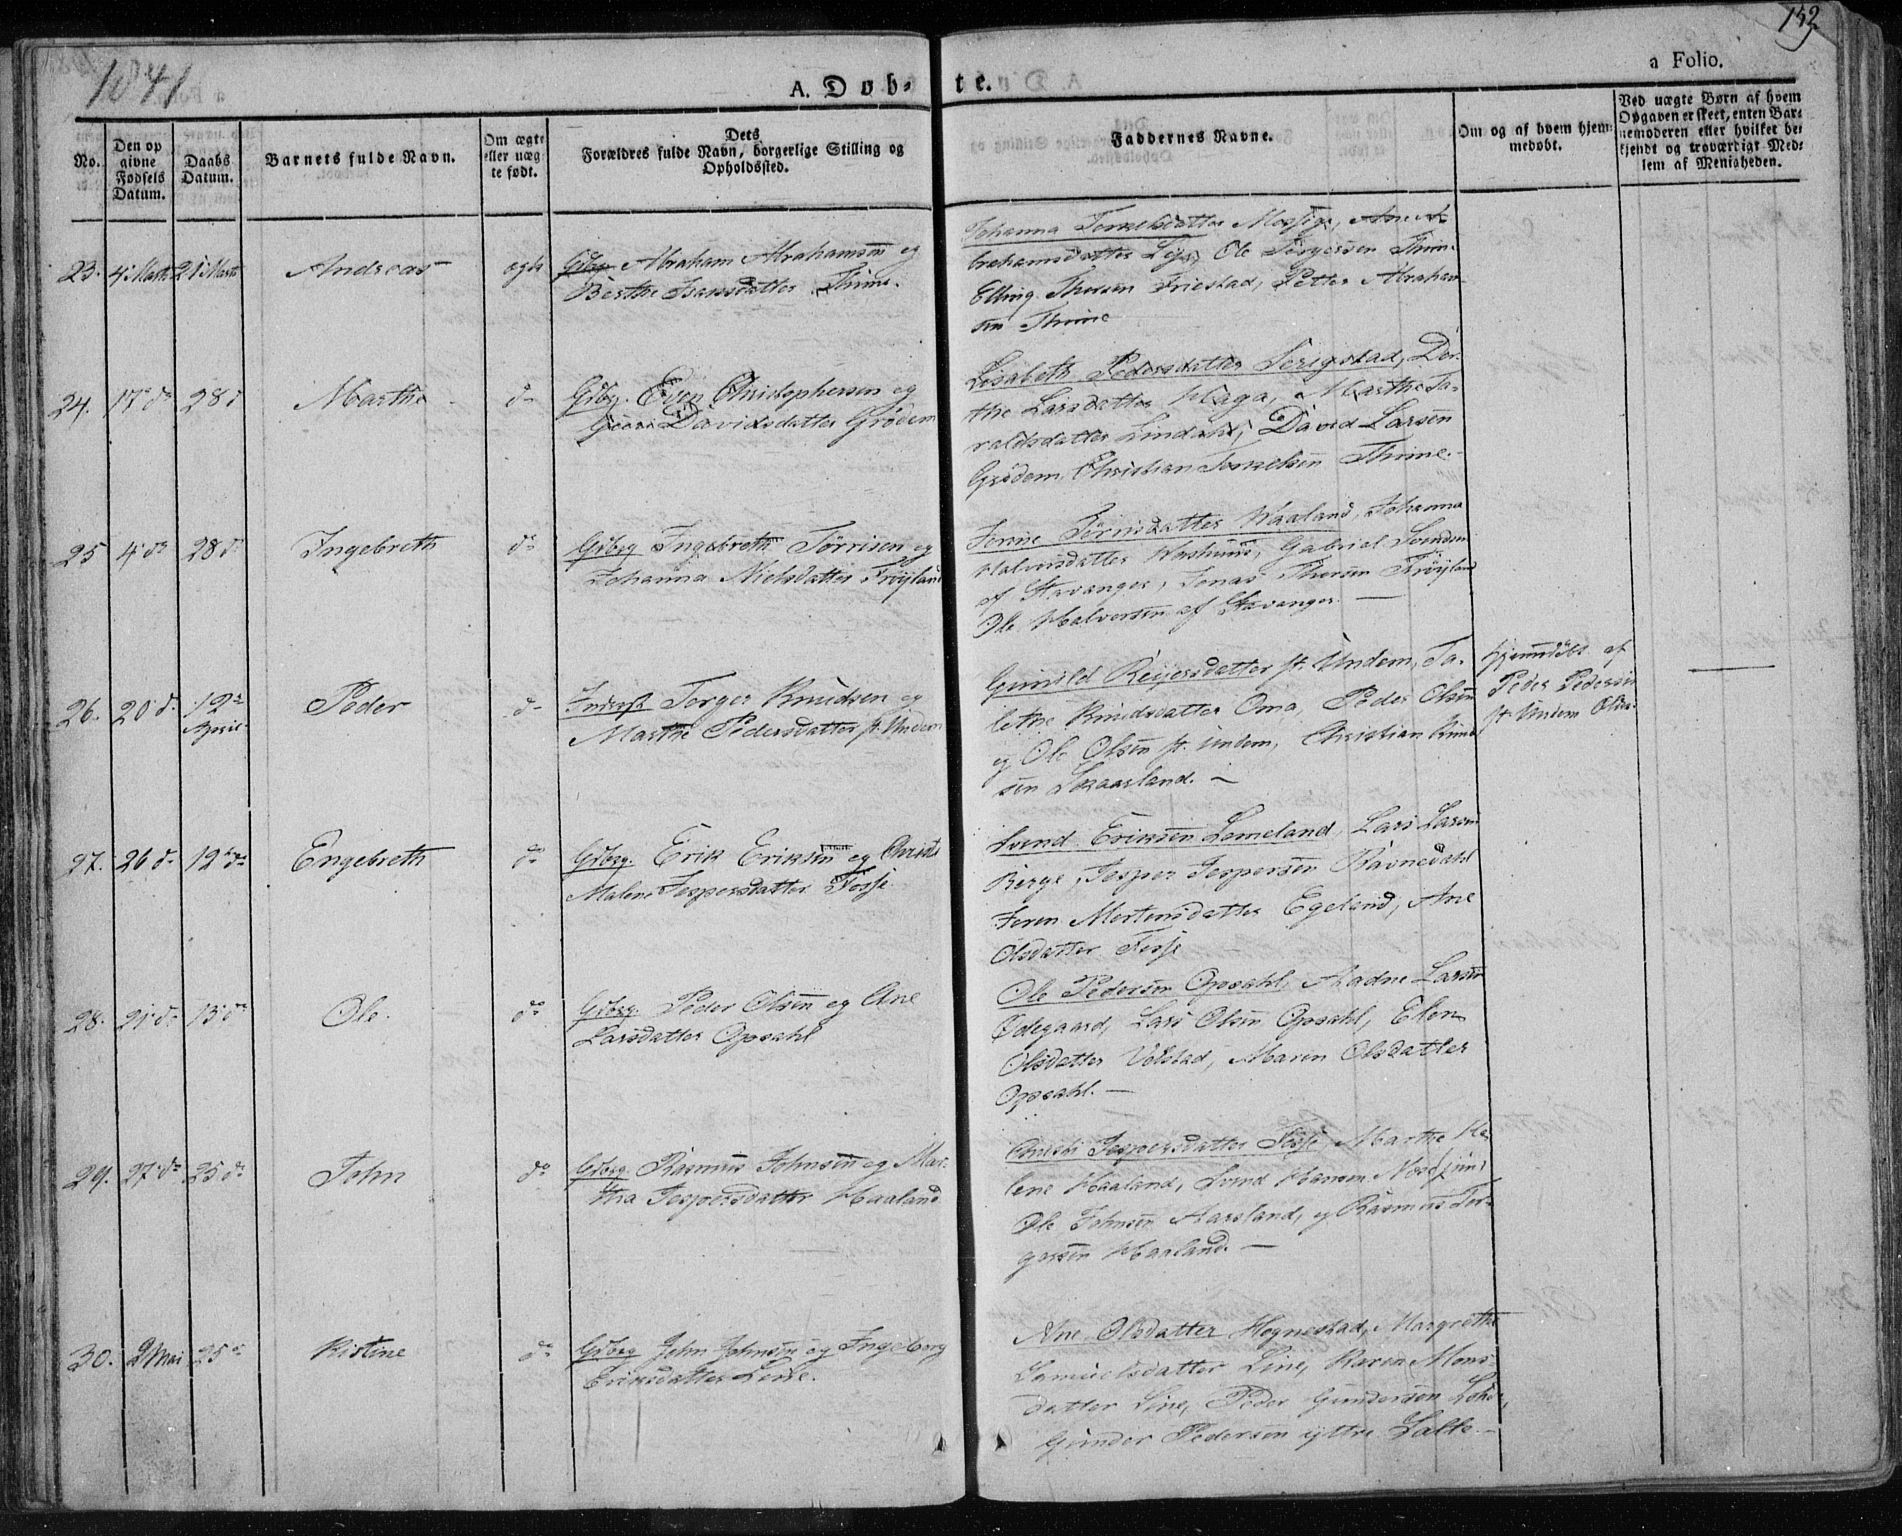 1841
A. Døb-
te.
a Folio.
152
No.
Den op
givne
Fødsels
Datum.
Daabs
Datum.
Barnets fulde Navn.
Om ægte
eller uæg-
te født.
Dets
Forældres fulde Navn, borgerlige Stilling og
Opholdssted.
Faddernes Navne.
Om og af hvem hjem-
medøbt.
Ved uægte Børn af hvem
Opgaven er skeet, enten Bar-
nemoderen eller hvilket be-
kjendt og troværdigt Med-
lem af Menigheden.
23. 4 Marts 21 Marts Andreas ægte
Gbrg. Abraham Abrahamsen og
Berthe Isaksdatter Thime.
Johanna Tormelsdatter Mossige, Ane A-
brahamsdatter Lye, Ole Torgersen Thime
Elling Thorsen Friestad, Petter Abraham-
sen Thime
24. 17 do 28 d Marthe do
Gbrg. Even Christophersen og
Davidsdatter Grødem
Lisabeth Pedersdatter Serigstad, Dor-
the Larsdatter Haga, Marthe Ta-
raldsdatter Lindahl, David Larsen
Grødem Christian Tormelsen Thime.
25 4 do 28 d Ingebreth do
Gbrg Ingebreth Tørrisen og
Johanna Nielsdatter Frøyland
Serine Tørrisdatter Haaland, Johanna
Halvorsdatter Gabriel
af Stavanger, Jonas Thorsen Frøyland
Ole Halvorsen af Stavanger. —
26. 20 d. 12te
April
Peder d-
Inderst Torger Knudsen og
Marthe Pedersdatter pl. Undem
Gunild Reijersdatter pl. Undem, Ta-
lethe Knudsdatter Oma, Peder Olsen
og Ole Olsen pl. Undem, Christian Knud-
sen Skaarland. —
hjemmedøbt af
Peder Pedersen
pl. Undem
27. 26 d. 12 do Engebreth do
Gbrg. Erik Eriksen og Christi
Malene Jespersdatter Fosse
Svend Eriksen Lomeland, Lars Larsen
Berge, Jesper Jespersen Ravnedahl
Seren Mortensdatter Egeland, Ane
Olsdatter Fosse
28. 21 d. 13 do Ole. do
Gbrg. Peder Olsen og Ane
Larsdatter Opsahl
Ole Pedersen Opsahl, Aadne Larsen
Ødegaard, Lars Olsen Opsahl, Elen
Olsdatter Volstad, Maren Olsdatter
Opsahl. —
29. 27 do 25 do John do
Gbrg. Rasmus Johnsen og Mar-
tha Jespersdatter Haaland
Christi Jespersdatter Fosse Marthe He-
lene Haaland, Svend Hansen
Ole Johnsen Aarsland, og Rasmus Tor-
gersen Haaland. —
30. 2 Mai 25 d Kistine do
Gbrg John Johnsen og Ingeborg
Eriksdatter Line.
Ane Olsdatter Hognestad, Margrethe
Samuelsdatter Line, Karen Mons-
datter Line, Peder Gundersen
Gunder Pedersen yttre Salte.